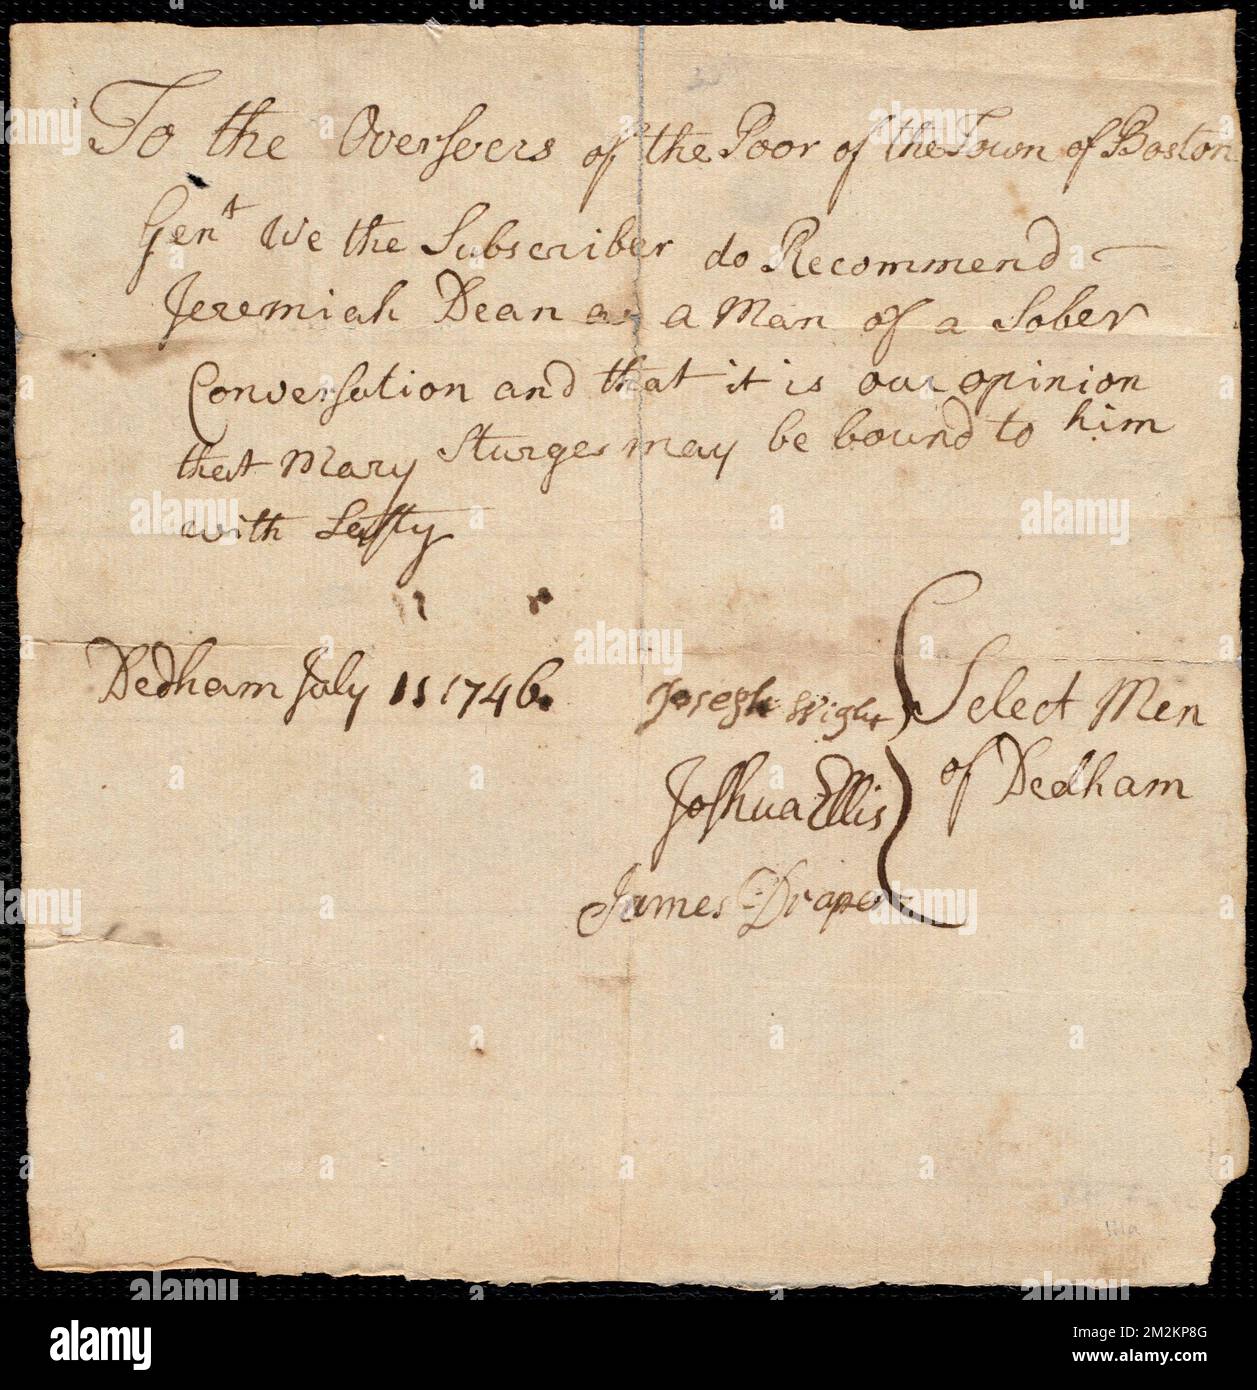 To the Overseers of the Poor of the Town of Boston
Gent We the Subscriber do Recommend
Jeremiah Dean as a Man of a Sober
Conversation and that it is our opinion
that Mary Sturges may be bound to him
with Safty
Dedham July 11 1746.
Joseph Wight
Joshua Ellis
James Draper
Select Men
of Dedham
111a
alamy
Image ID: 2M2KP8G
www.alamy.com